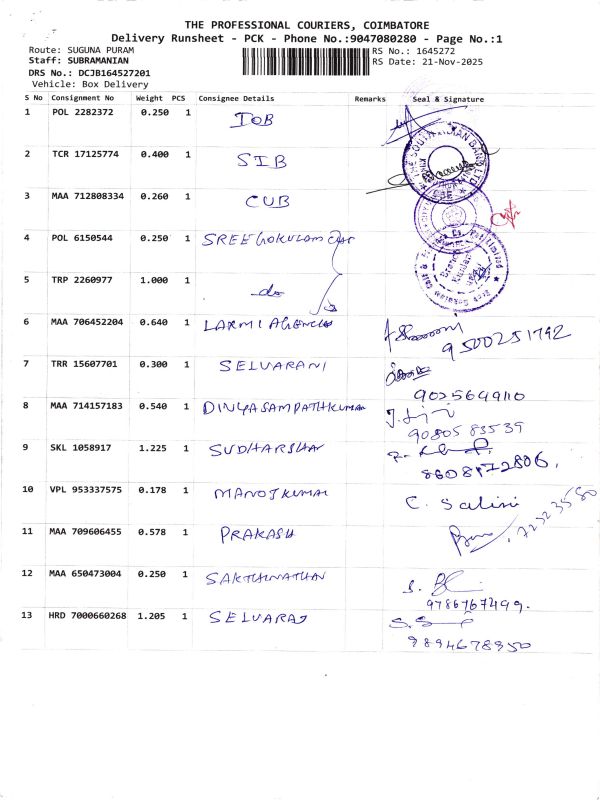 THE PROFESSIONAL COURIERS, COIMBATORE
Delivery Runsheet - PCK - Phone No.:9047080280 - Page No.:1
Route: SUGUNA PURAM
RS No.: 1645272
Staff: SUBRAMANIAN
RS Date: 21-Nov-2025
DRS No.: DCJB164527201
Vehicle: Box Delivery
S No Consignment No Weight PCS Consignee Details Remarks Seal & Signature
1 POL 2282372 0.250 1 IOB
2 TCR 17125774 0.400 1 SIB
3 MAA 712808334 0.260 1 CUB
4 POL 6150544 0.250 1 SREE GOKULAM
5 TRP 2260977 1.000 1 do
6 MAA 706452204 0.640 1 LAXMI AGENCIES
9500251792
7 TRR 15607701 0.300 1 SELVARANI
9025649110
8 MAA 714157183 0.540 1 DIVYASAMPATHKUMAR
9080583539
9 SKL 1058917 1.225 1 SUDHARSHAN
8608172806.
10 VPL 953337575 0.178 1 MANOJKUMAR C. Salini
11 MAA 709606455 0.578 1 PRAKASH
12 MAA 650473004 0.250 1 SAKTHINATHAN
9786767499.
13 HRD 7000660268 1.205 1 SELVARAJ
9894678950